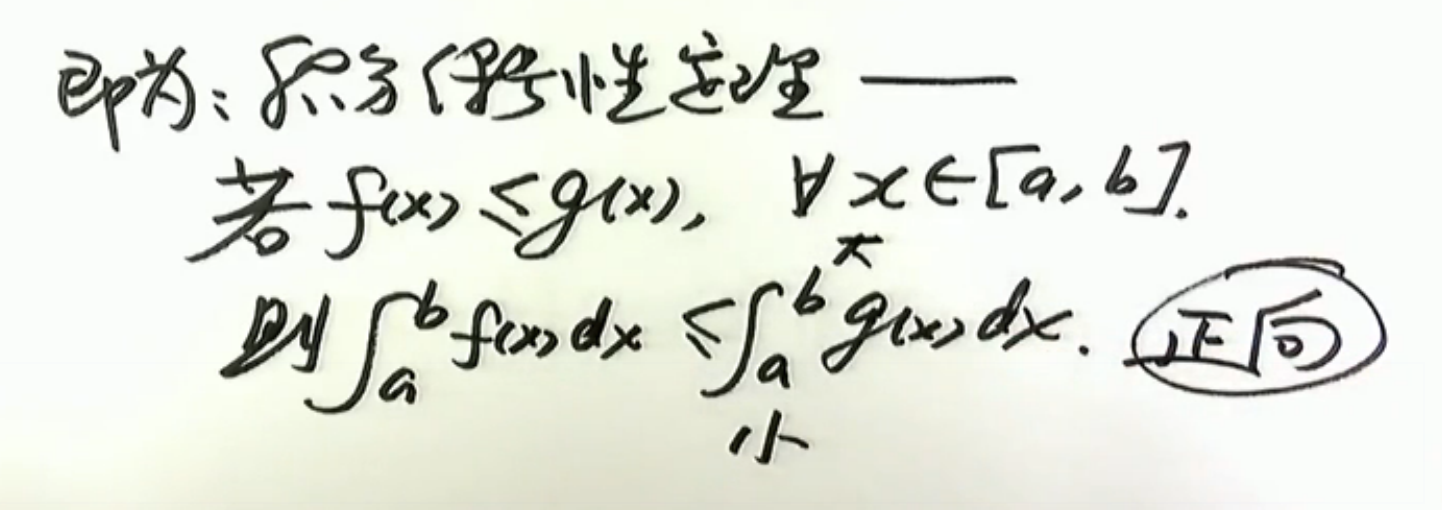 即为：积分保号性定理 ——
若 f(x) ≤ g(x), ∀ x ∈ [a, b].
大
则 ∫_a^b f(x) dx ≤ ∫_a^b g(x) dx. 正向
小